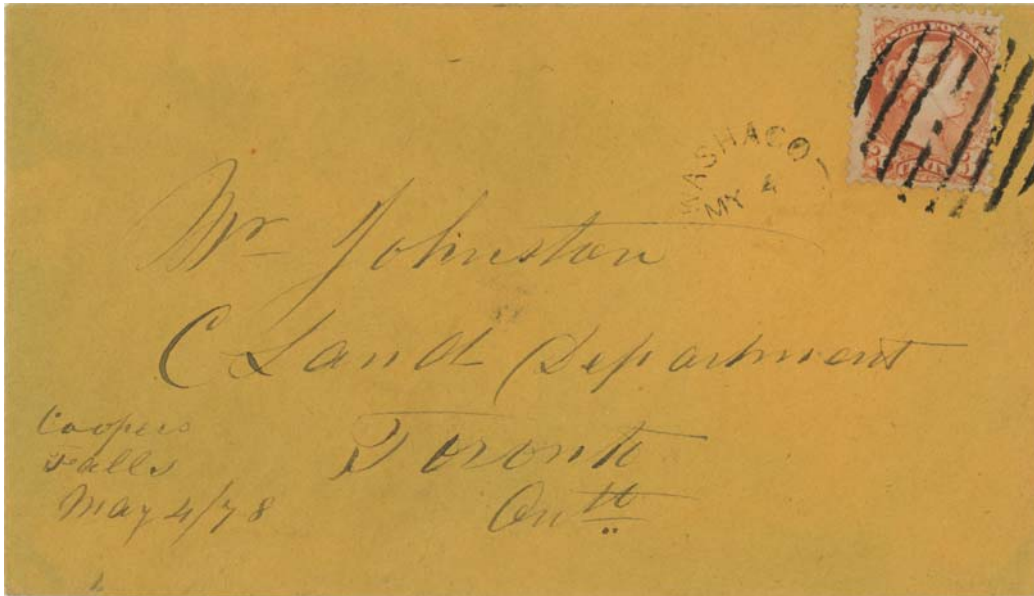 CANADA POSTAGE
WASHAGO
MY 4
Mr Johnston
C Land Department
Toronto
Ontº
Coopers
Falls
May 4/78